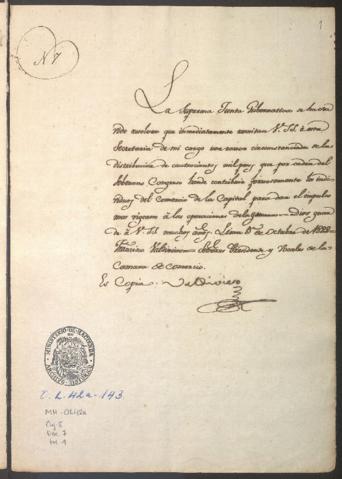 N 7
1
La Suprema Junta Gubernativa se ha ser
vido resolver que inmediatamente remitan V. SS. á esta
Secretaria de mi cargo una razon circunstanciada de la
distribucion de cuatrocientos mil pesos, que por orden del
Soberano Congreso donde contribuir forzosamente los indi
viduos del Comercio de la Capital para dar el impulso
mas vigoroso á las operaciones de la guerra. = Dios guar
de á V. SS. muchos años. Lima de Octubre de 1822
Francisco Valdivieso = Señores Presidente y Vocales de la
Camara de Comercio.
Es Copia. Valdivieso
MINISTERIO DE HACIENDA
ARCHIVO HISTORICO
O. L. 42a - 143
MH-OL42a
Caj 5
Doc. 7
fol. 1